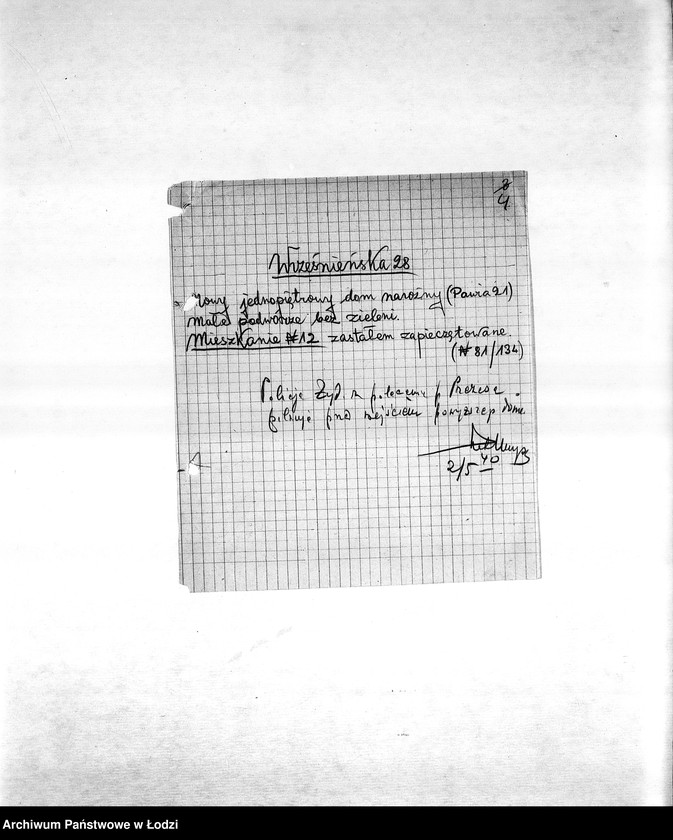 4
Wrześnieńska 28
Nowy jednopiętrowy dom narożny (Pawia 21)
Małe podwórze bez zieleni.
Mieszkanie № 12 zastałem zapieczętowane.
(№ 81/134)
Policja Żyd z polecenia p Prezesa
pilnuje przed wejściem powyższego domu.
2/5 40
Archiwum Państwowe w Łodzi